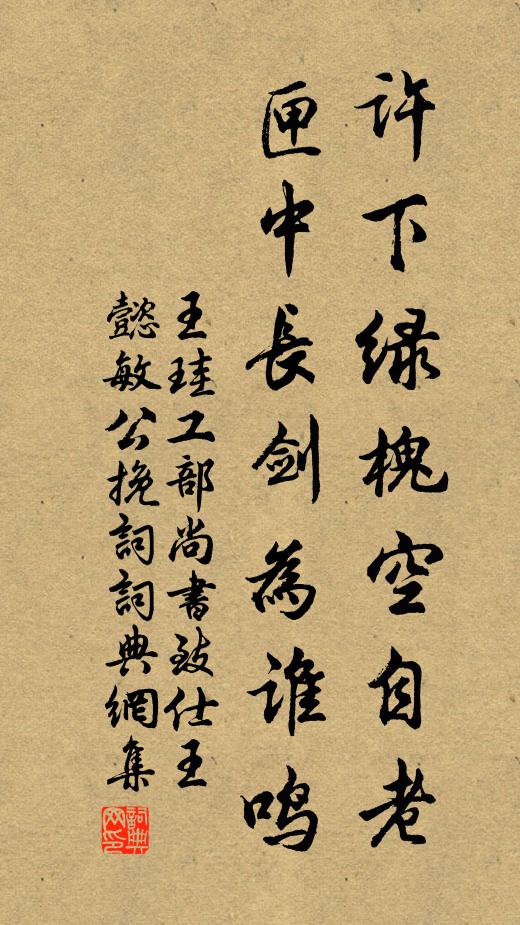 许下绿槐空自老
匣中長剑為谁鸣
王珪工部尚書致仕王
懿敏公挽詞詞典網集
詞典网印